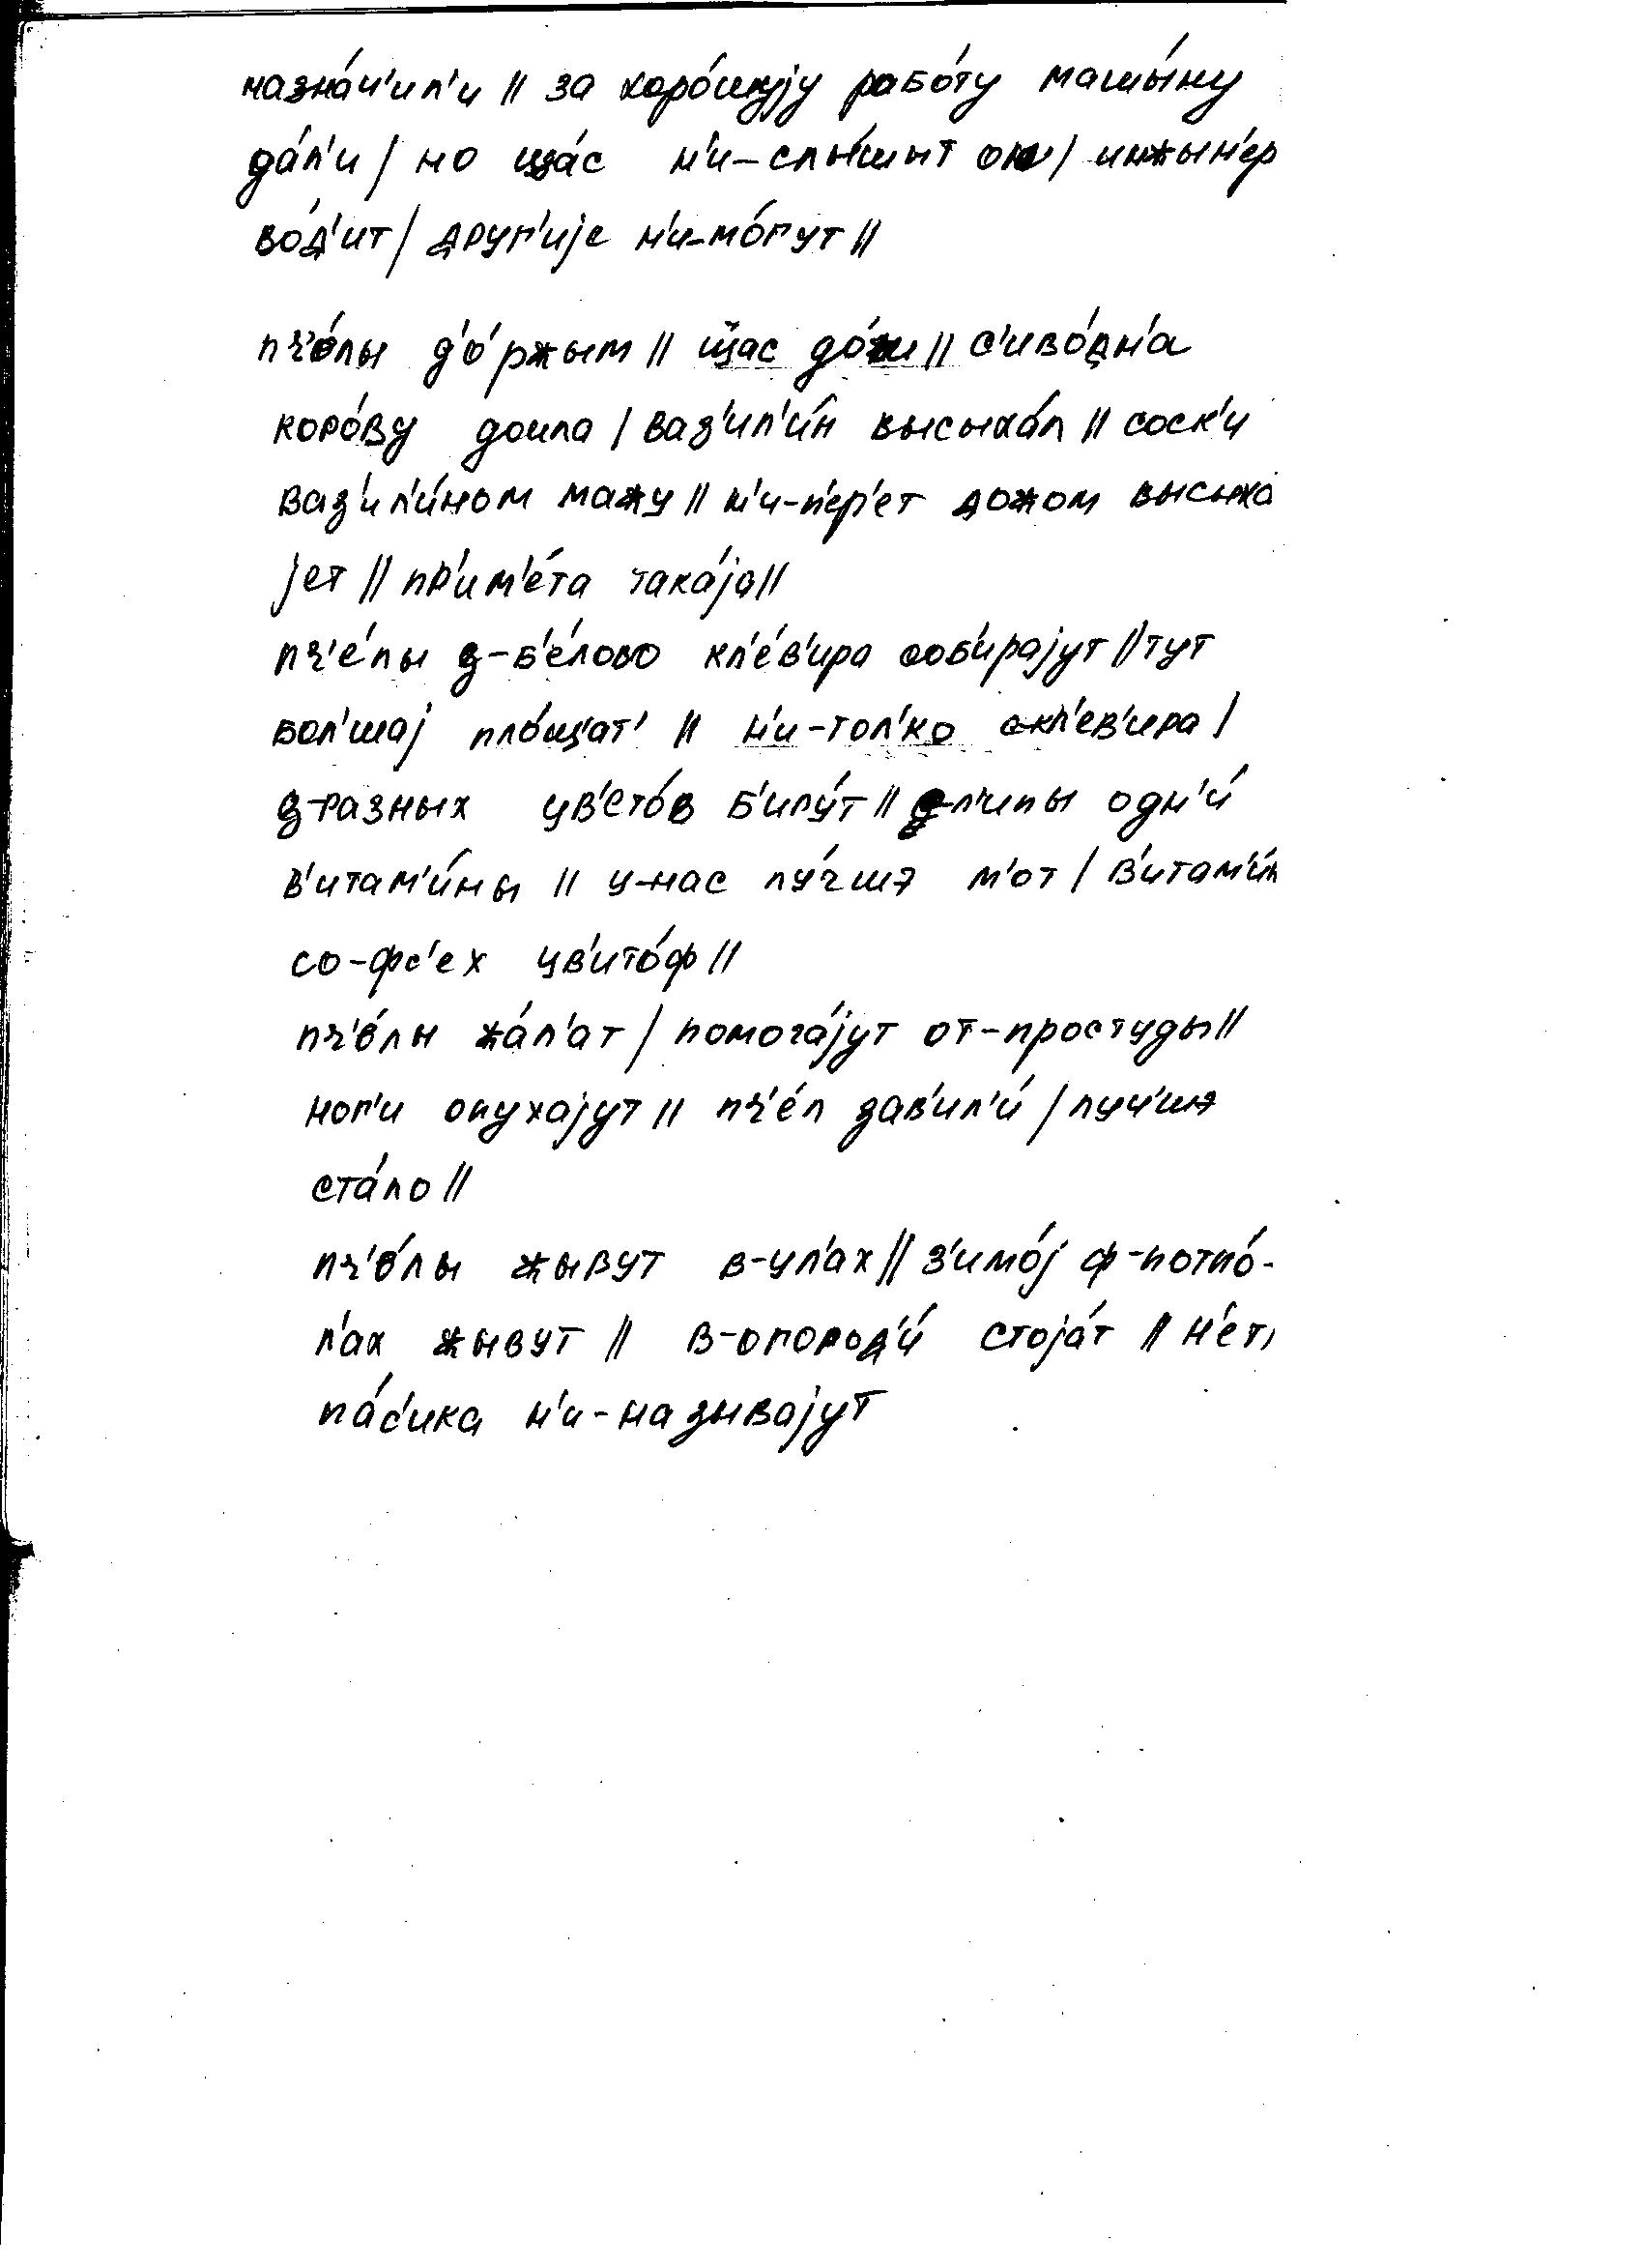 назна́ч'ил'и // за хоро́шуjу рабо́ту машы́ну
да́л'и / но ща́с н'и-слы́шыт он / инжын'е́р
во́д'ит / друг'иjе н'и-мо́гут //
пч'о́лы д'о́ржым // щас до́ш // с'иво́дн'а
коро́ву доила / ваз'ил'и́н высыха́л // соск'и
ваз'ил'и́ном мажу // н'и-п'ер'ет дожом высыха
jет // пр'им'е́та така́jа //
пч'е́лы з-б'е́лово кл'е́в'ира соб'ираjут // тут
бол'шаj пло́щ'ат' // н'и-тол'ко скл'ев'ира /
з-разных цв'ето́в б'иру́т // з-л'ипы одн'и́
в'итам'и́ны // у-нас лу́чшэ м'от / в'итам'и́н
со-фс'ех цв'ито́ф //
пч'о́лы жа́л'ат / помога́jут от-простуды //
ног'и опухаjут // пч'е́л зав'ил'и́ / луч'шэ
ста́ло //
пч'о́лы жывут в-ул'ах // з'имо́j ф-потпо́-
л'ах жывут // в-огород'и́ стоjа́т // н'ет,
па́с'ика н'и-называjут